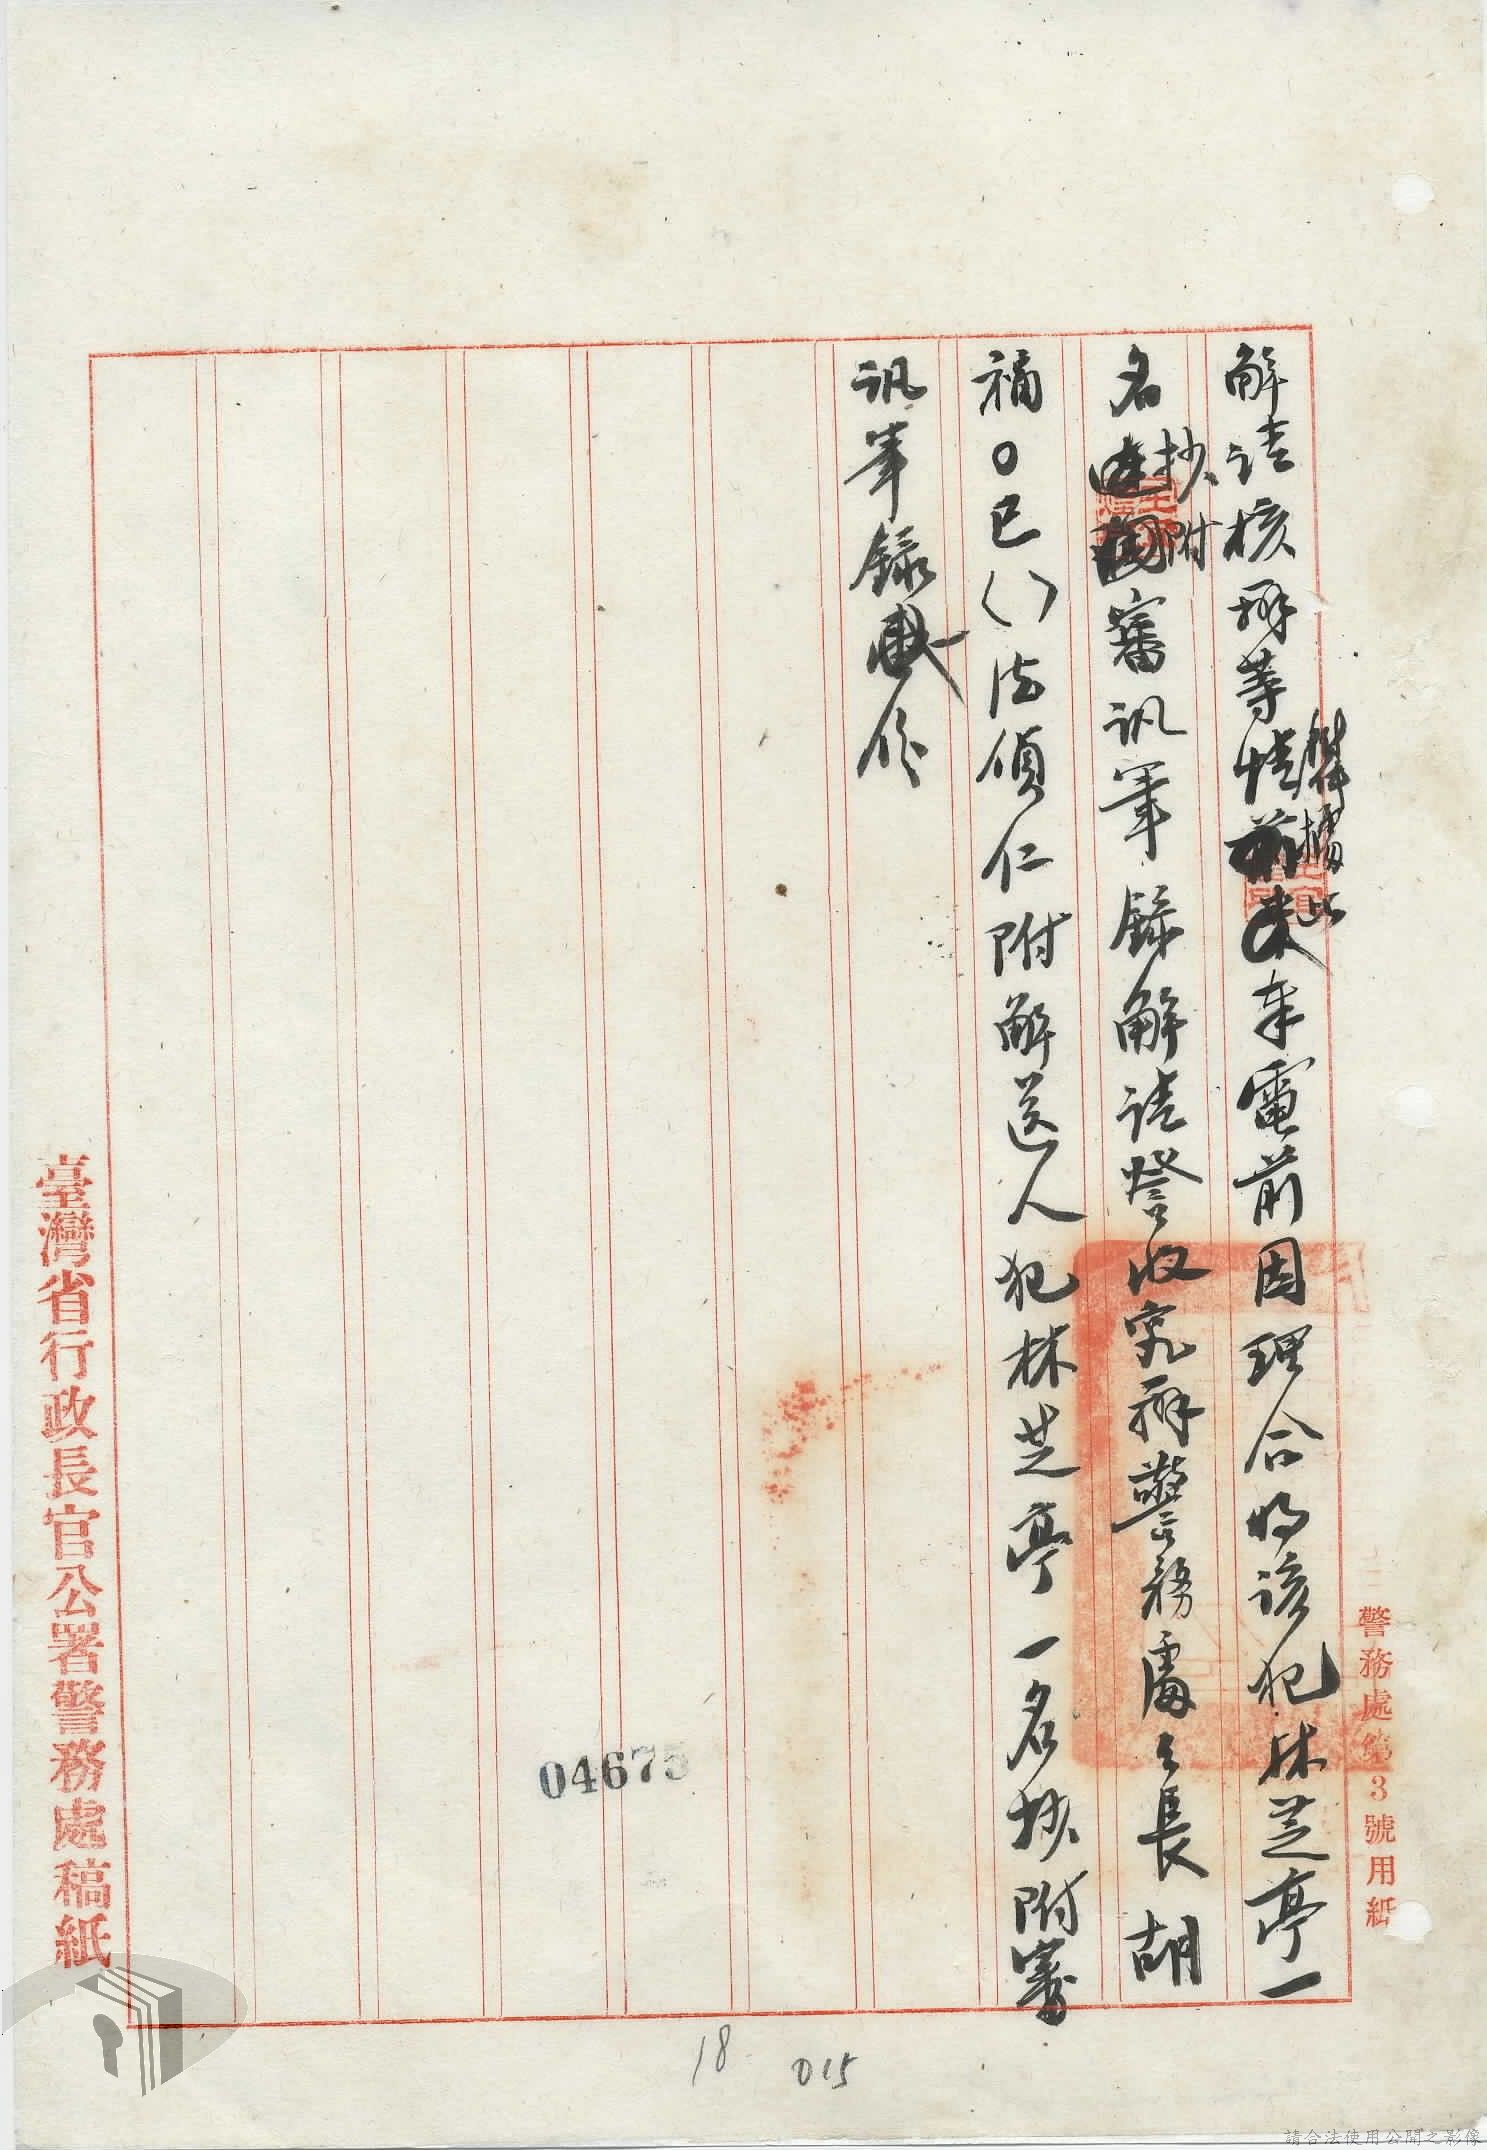 警務處第3號用紙
解請核辦等情據此奉電前因理合將該犯林芝亭一
名抄附審訊筆錄解請詧收究辦警務處處長胡
福〇巳()法偵仁附解送人犯林芝亭一名抄附審
訊筆錄份
臺灣省行政長官公署警務處稿紙
04675
18
015
請合法使用公開之影像